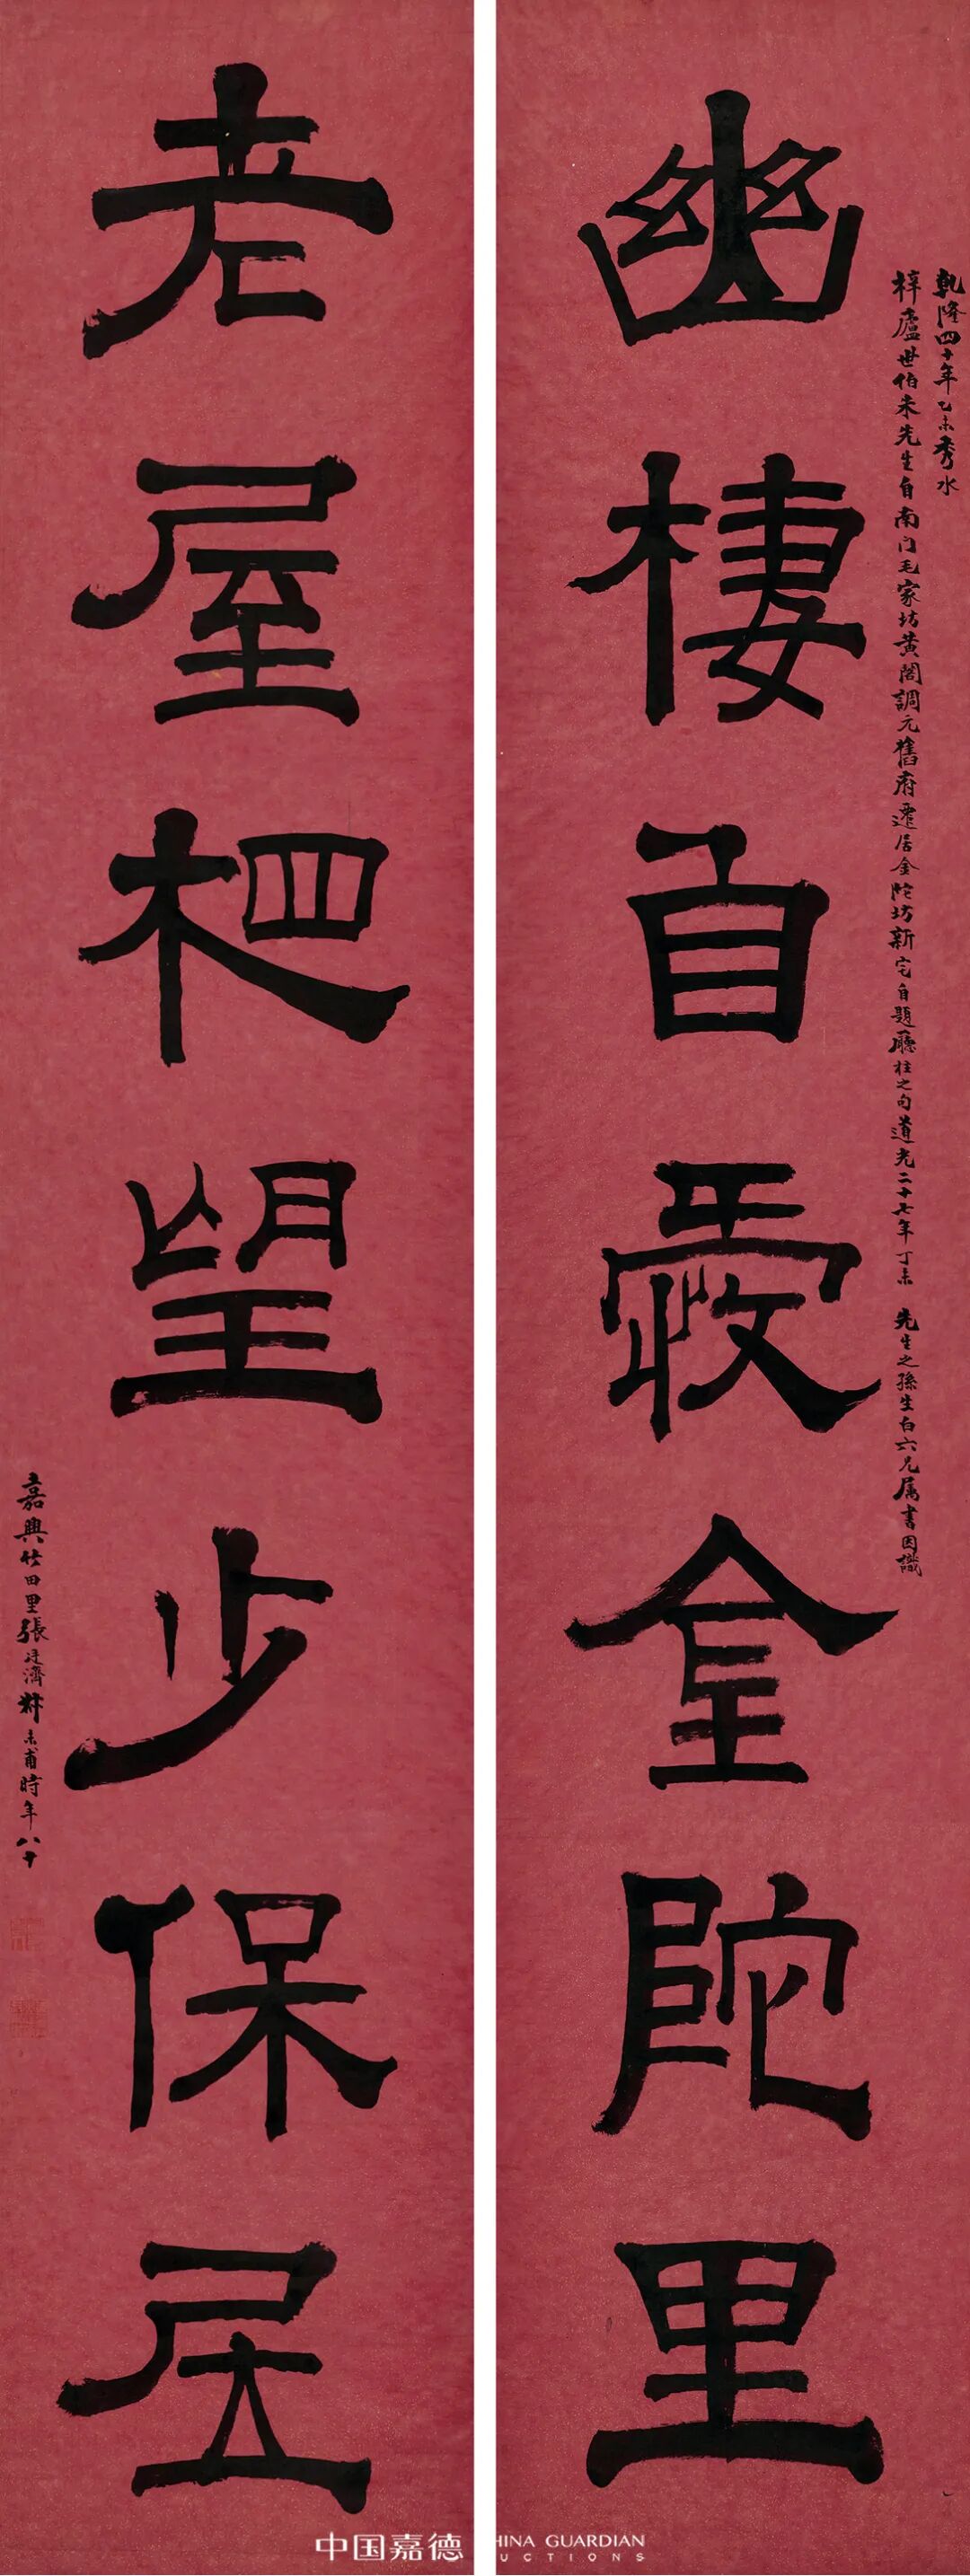 乾隆四十年乙未秀水
梓廬世伯朱先生自南门毛家坊黃閣調元舊府遷居金陀坊新宅自題廳柱之句道光二十七年丁未 先生之孫生白六兄属書因識
幽棲自愛金陀里
老屋相望少保居
嘉興竹田里張廷濟叔未甫時年八十
中国嘉德
HINA GUARDIAN
UCTIONS